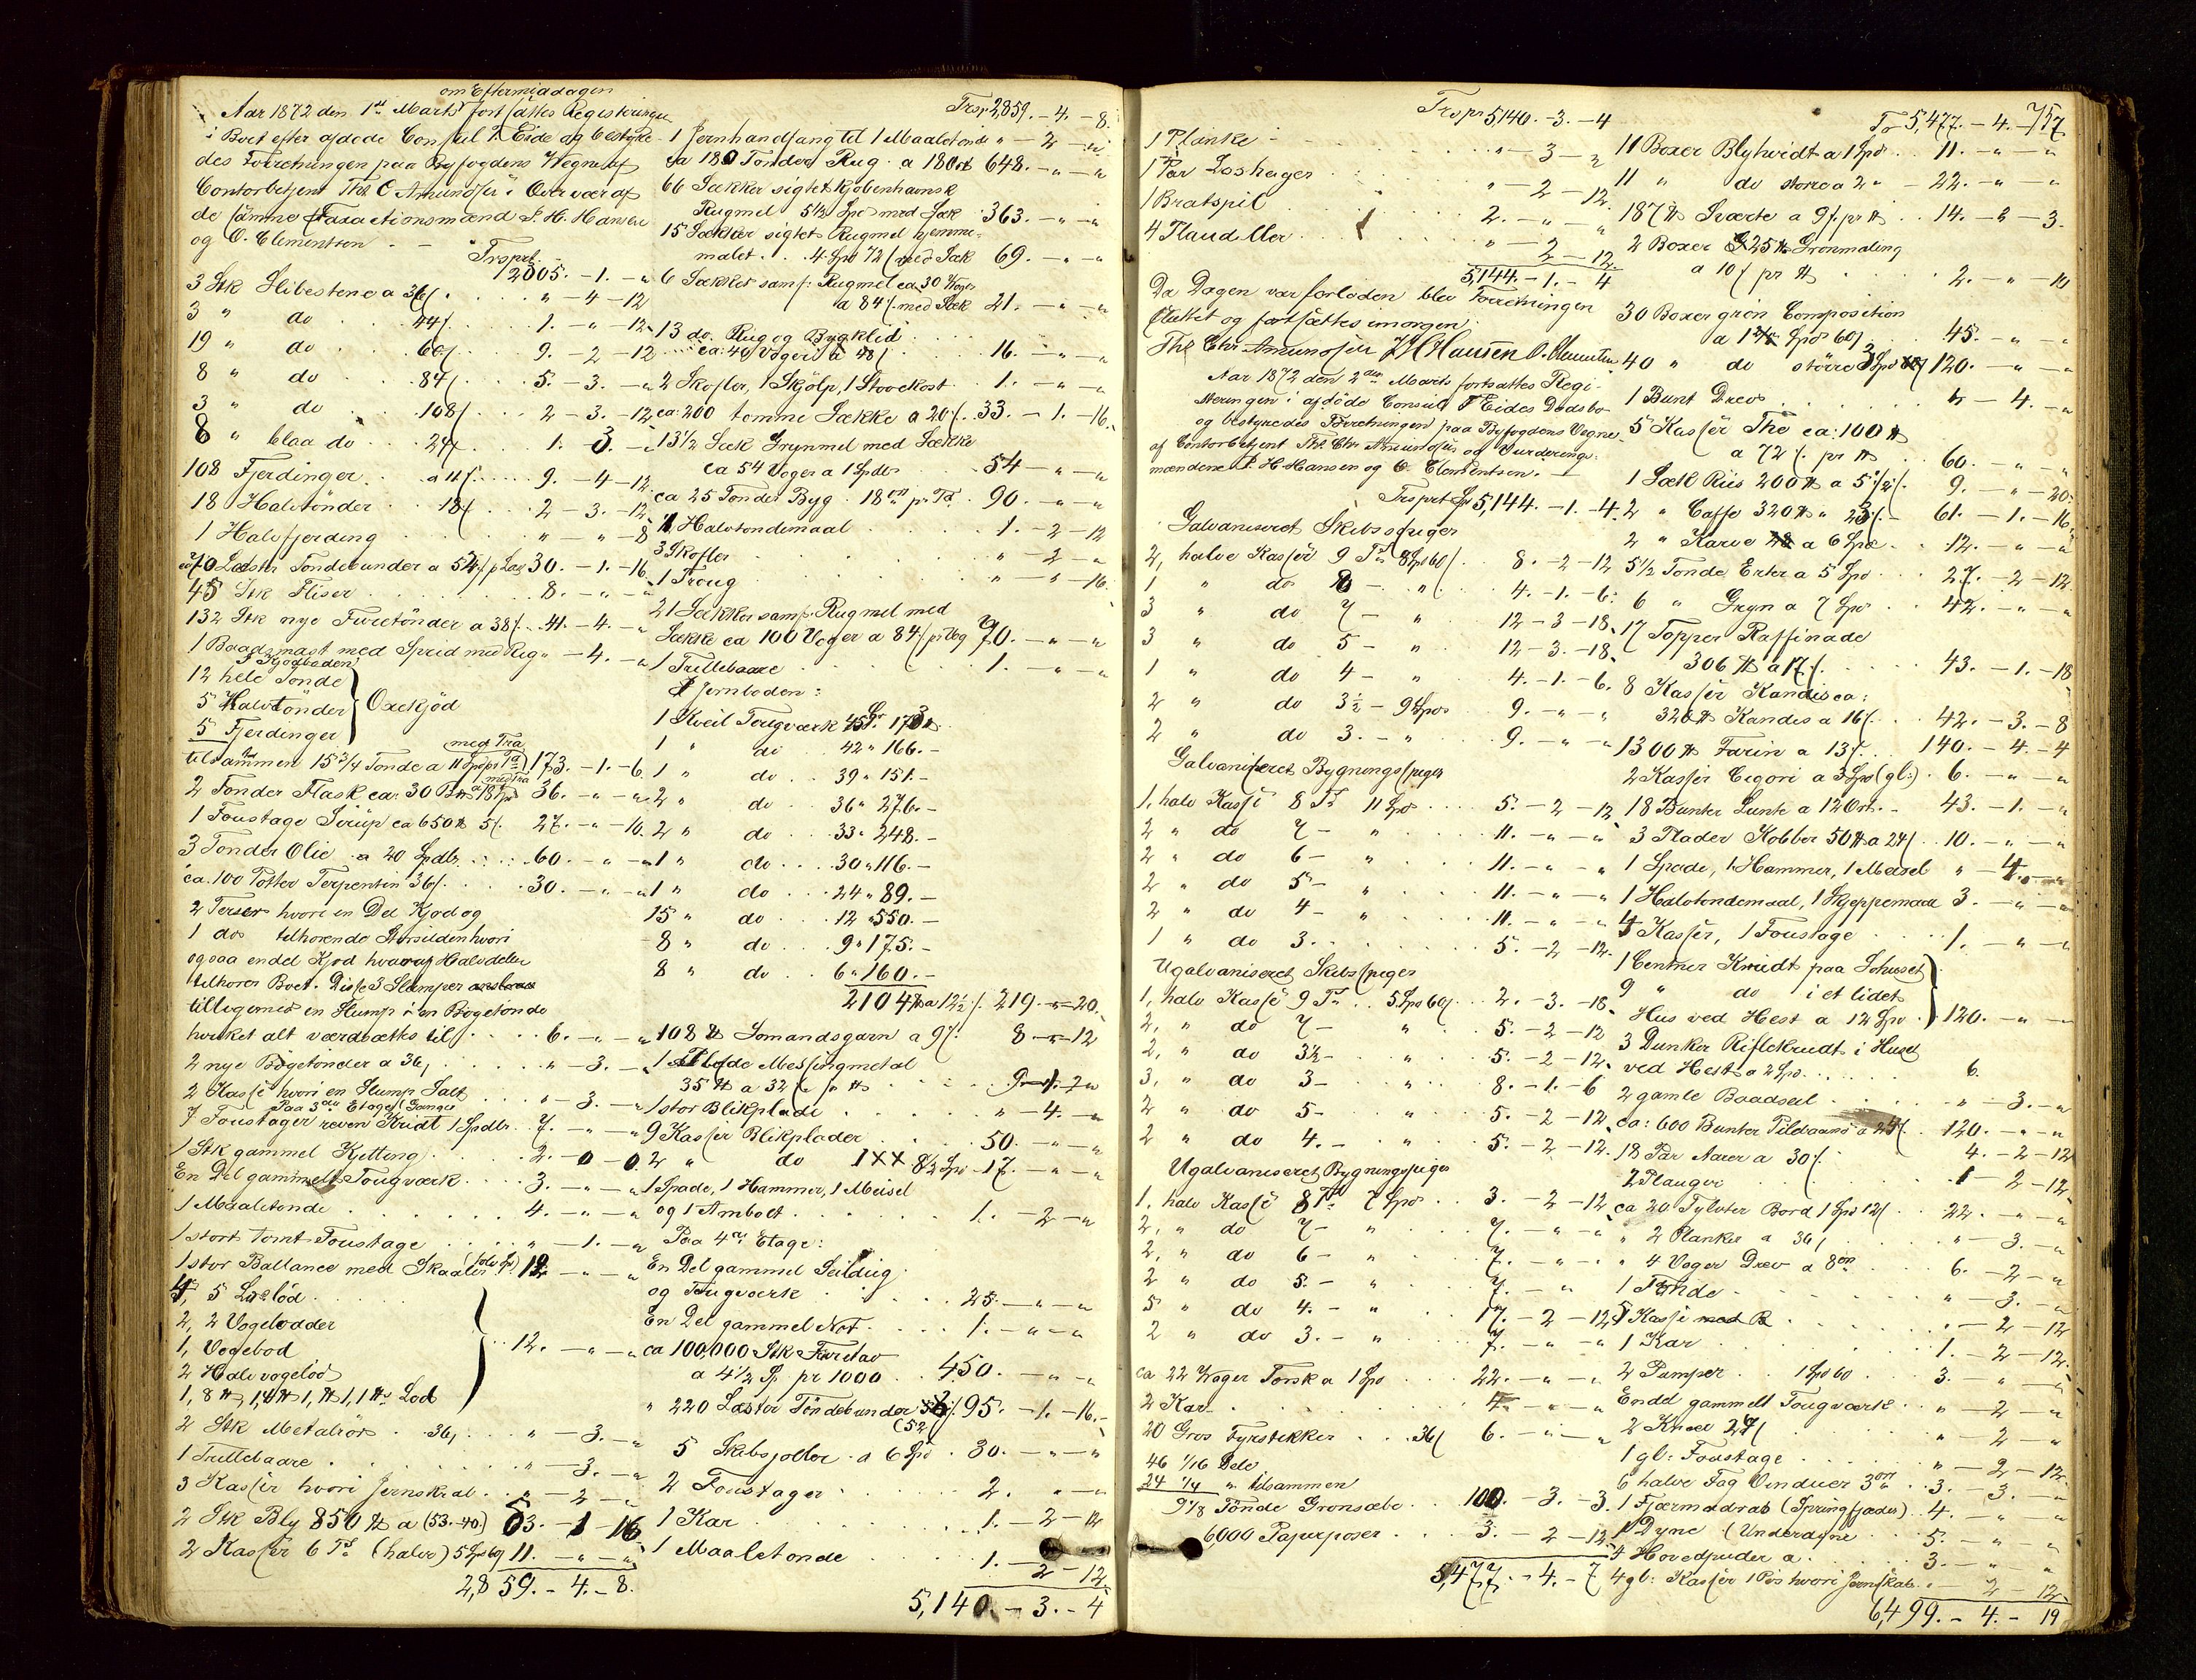 om Eftermiddagen
Aar 1872 den 1ste Marts fortsattes Registeringen
i Boet efter afdøde Consul T. Eide og bestyre-
des Forretningen paa Byfogdens Vegne af
Contorbetjent Thr C Amundsen i Overvær af
de samme Taxactionsmænd P. H. Hansen
og O. Clementsen. - Trsprt.
12005. - 1. - "
3 Stk Slibestene a 36/ . . " - 4 - 12
3 " do . 44/ . . 1. - " - 12
19 " do . 60/ . . 9. - 2 - 12
8 " do . . 84/ . . 5. - 3. - "
3 " do . . 108/ . . 2 - 3. - 12
8 " blaa do . . 24/ . . 1. - 3. - "
108 Fjerdinger . a 11/ . . 9. - 4 - 12
18 Halvtönder . . 18/ . . 2 - 3. - 12
1 Halvfjerding . . " " - 8
ca 70 Læster Tøndebunder a 52/ p Læs 30. - 1. - 16
45 Stk Fliser . . 8. - " - "
132 Stk nye Furetönder a 38/ . 41. - 4. - "
1 Baadsmast med Spred med Rig " - 4. - "
I Kjødboden
12 hele Tønde
5 Halvtönder } Oxekjöd
5 Fjerdinger
med Træ
tilsammen 15 3/4 Tonde a 11 Spd pr Td 173. - 1. - 6
2 Tonder Flask ca: 30 B℔ a 18 Spd med Træ 36. - " - "
1 Foustage Sirup ca 650 ℔ 5/. 27. - " - 10
3 Tonder Olie . a 20 Spdlr . . 60. - " - "
ca. 100 Potter Terpentin 36/ . . 30. - " - "
2 Terser hvori en Del Kjød og
1 do tilhorende Storsilden hvori
ogsaa endel Kjød hvoraf Halvdelen
tilhorer Boet. Disse 3 Slumper
tilligemed en Slump i en Bøgetonde
hvilket alt værdsættes til . . 6. - " - "
2 nye Bögetonder a 36/ . . " - 3. - "
2 Kasse hvori en Slump Salt . . " - 3. - "
Paa 3die Etages Gange
7 Foustager reven Kridt 1 Spdlr. 7. - " - "
1 Stk gammel Kjetting . . 2. - 0 - 0
En Del gammelt Tougværk . . 3. - " - "
1 Maaletonde . . 4. - " - "
1 stort tomt Foustage . . " - 1. - "
1 stor Ballance med Skaaler (tolv Sp.) 12 - " - "
4, 5 Lislød
2, 2 Vogelodder
1, Vogebod } . . 12. - " - "
2 Halvvogelod
1, 8 ℔, 1,4 ℔ 1, ℔ 1, 1 ℔ Lod
2 Stk Metalrör . 36/ . . " - 3. - "
1 Trillebaare . . " - 3. - "
3 Kasser hvori Jernskrab . . " - 2 - "
2 Stk Bly 850 ℔ a (53.-40) 63. - 1 - 16
2 Kasser 6 T. (halve) 5 Spd 60 11. - " - "
2,859. - 4. - 8.
Trsp 2,859. - 4. - 8.
1 Jernhandfang til 1 Maaletonde " - 2 - "
ca 180 Tonder Rug . a 18 ort 648. - " - "
66 Sækker sigtet kjobenhavnsk
Rugmel 5 1/2 Spd med Sæk . 363. - " - "
15 Sækker sigtet Rugmel hjemme-
malet . . 4 Spd 72/ med Sæk 69. - " - "
6 Sækker sams. Rugmel ca 30 Voger
a 84/ med Sæk 21. - " - "
13 do. Rug og Bygklid
ca: 40 Voger a 48/ . . 16. - " - "
2 Skofler, 1 Skjølp, 1 Stovekost . 1. - " - "
ca: 200 tomme Sække a 20/. 33. - 1. - 16.
13 1/2 Sæk Grynmel med Sække
ca 54 Voger a 1 Spdlr . 54 - " - "
ca 25 Tonder Byg . 18 ort pr Td . 90. - " - "
1 Halvtondemaal . . 1. - 2 - 12
3 Skofler . . " - 2 - "
1 Troug . . " - " - 16
21 Sækker sams. Rugmel med
Sække ca 100 Voger a 84/ pr Vog 70. - " - "
1 Trillebaare . . 1. - " - "
I Jernboden:
1 Kveil Tougværk 45 Gr 173 ℔
1 " do 42 " 166. -
1 " do . . 39 " 151. -
2 " do . . 36 " 276. -
2 " do . . 33 " 248. -
1 " do . . 30 " 116. -
1 " do . . 24 " 89. -
15 " do . . 12 " 550. -
8 " do . . 9 " 175. -
8 " do . . 6 " 160. -
2104 ℔ a 12 1/2 /. 219. - " - 20.
108 ℔ Somandsgarn a 9/. 8 - " - 12
1 Plade Messingmetal
35 ℔ a 32/ pr ℔ . . 9 - 1. -
1 stor Blikplade . . " - 4. - "
9 Kasser Blikplader . . 50. - " - "
2 " do 1XX 8 1/2 Spd 17. - " - "
1 Spade, 1 Hammer, 1 Meisel
og 1 Ambolt . . 1. - 2 - "
Paa 4de Etage:
En Del gammel Seildug
og Tougværk . . 25. - " - "
En Del gammel Not . . 1. - " - "
ca 100,000 Stk Furestav
a 4 1/2 Sp. pr 1000 . . 450. - " - "
" 220 Læster Töndebunder /. 95. - 1. - 16. -
(52/)
5 Skibsjoller . a 6 Spd . 30. - " - "
2 Foustager . . 2. - " - "
1 Kar . . 1. - 2 - 12
1 Maaletonde . . 1. - 2 - 12
5,140. - 3. - 4
Trspr 5,140. - 3. - 4
1 Planke - . . " - 3 - "
1 Par Loshager . . " - 2 - 12
1 Bratspil . . 2. - " - "
4 Flaudller . . " - 2 - 12
5,144. - 1. - 4
Da Dagen var forløden blev Forretningen
sluttet og fortsættes imorgen.
Thr Chr Amundsen P H Hansen O. Clementsen
Aar 1872 den 2den Marts fortsattes Regi-
steringen i afdöde Consul T Eides Dødsbo
og bestyredes Forretningen paa Byfogdens Vegne
af Contorbetjent Thr. Chr Amundsen og Vurderings-
mændene P. H. Hansen og O. Clementsen. -
Trsprt Sp 5,144. - 1. - 4
Galvaniseret Skibsspiger
2, halve Kasser 9 T. 8 Spd 60/ . . 8. - 2 - 12
1 " do 8 - " . 4. - 1. - 6
3 " do 7 - " 12 - 3 - 18
3 " do 5 - " 12 - 3. - 18
1 " do 4 - " 4. - 1. - 6.
2 " do 3 1/2 - 9 Spd 9. - " - "
2 " do 3. - " 9. - " - "
Galvaniseret Bygningsspiger
1, halv Kasse 8 T. 11 Spd . . 5. - 2 - 12
2 " do 7 - " . . 11. - " - "
2 " do 6 - " . . 11. - " - "
2 " do 5 - " . . 11. - " - "
2 " do 4 - " . . 11. - " - "
1 " do 3. . . 5. - 2 - 12
Ugalvaniseret Skibsspiger
1, halv Kasse 9 T. . . 5 Spd 60/ . 2. - 3. - 18
2, " do 7 - " 5. - 2 - 12
2, " do 3 1/2 - " 5. - 2 - 12
3, " do 3 - " 8. - 1. - 6
2 " do 5 - " 5. - 2 - 12
2 " do 4. - " 5. - 2 - 12
Ugalvaniseret Bygningsspiger
1, halv Kasse 8 T. 7 Spd . . 3. - 2 - 12
2, " do 7 - " . 7. - " - "
2, " do 6 - " . 7. - " - "
2 " do 5. - " . 7. - " - "
5 " do 4. - " . 17. - 2 - 12
2 " do 3. - " . 7. - " - "
ca 22 Voger Torsk a 1 Spd . . 22. - " - "
2 Kar . . 4. - " - "
20 Gros Fyrstikker . . 36/ 6. - " - "
46 1/16 Dele
24 1/4 " tilsammen
9 1/8 Tönde Gronsæbe . . 100. - 3. - 3.
6000 Papirposer . . 3. - 2 - 12
5,477. - 4. - 7
757
Tr 5,477. - 4. - 7
11 Boxer Blyhvidt a 1 Spd . . 11. - " - "
11 " do större a 2 " - 22. - " - "
187 ℔ Sværte a 9/ pr ℔ . . 14. - " - 3.
2 Boxer 25 ℔ Grönmaling
a 10/ pr ℔ . . 2. - " - 10
30 Boxer grön Composition
a 1 Spd 60/ . . 45. - " - "
40 " do större 3 Spd 120. - " - "
1 Bunt Drev . . " - 4. - "
5 Kasser The ca: 100 ℔
a 72/. pr ℔ . . 60. - " - "
1 Sæk Riis 200 ℔ a 5 1/2 /. 9. - " - 20
2 " Caffe 320 ℔ " 23/. - 61. - 1. - 16
2 " Karve a 6 Spd . . 12. - " - "
5 1/2 Tonde Erter a 5 Spd . . 27. - 2 - 12
6 " Gryn a 7 Spd . . 42. - " - "
17 Topper Raffinade
306 ℔ a 17/. . . 43. - 1. - 18
8 Kasser Kandis ca:
320 ℔ Kandis a 16/. . . 42. - 3. - 8
1300 ℔ Farin a 13/. . 140. - 4. - 4
2 Kasser Cigori a 3 Spd (gl:) . 6. - " - "
18 Bunter Lunte a 12 Ort. - 43. - 1. - "
3 Plader Kobber 50 ℔ a 24/ . . 10. - " - "
1 Spade, 1 Hammer, 1 Meisel " - 4. - "
1 Halvtondemaal, 1 Skjeppemaal 3. - " - "
4 Kasser, 1 Foustage . . 1. - " - "
1 Centner Krudt paa Sohuset
9 " do i et lidet
Hus ved Hest a 12 Spd . } 120. - " - "
3 Dunker Riflekrudt i Huset
ved Hest a 2 Spd . . 6.
2 gamle Baadseil . . " - 3. - "
ca: 600 Bunter Pilebaand a 24/. 120. - " - "
18 Par Aarer a 30/. 4. - 2 - 12
2 Plauger . . 1 - 2 - 12
ca 20 Tylvter Bord 1 Spd 12/ . . 22. - " - "
" 2 Planker a 36/ . . " - 3. - "
" 4 Voger Drev a 8 ort . . 6. - 2 - "
1 Tønde . . " - 3. - "
5 Kasse . . " - 2 - 12
1 Kar . . 1. - 2 - 12.
2 Pumper . . 1 Spd 60 3. - " - "
Endel gammelt Tougværk . . " - 2 - "
2 Knæ 24/ . . " - 2 - "
1 gl: Foustage . . " - 2 - 12
6 halve Fag Vinduer 3 ort . 3. - 3. - "
1 Fjærmadrads (Springfjæder) 4. - " - "
1 Dyne (Underdyne . . 5. - " - "
4 Hovedpuder a . . 3. - " - "
4 gl: Kasser 1 Pøs hvori Jernskab . " - 2 - 12
6,499. - 4. - 19